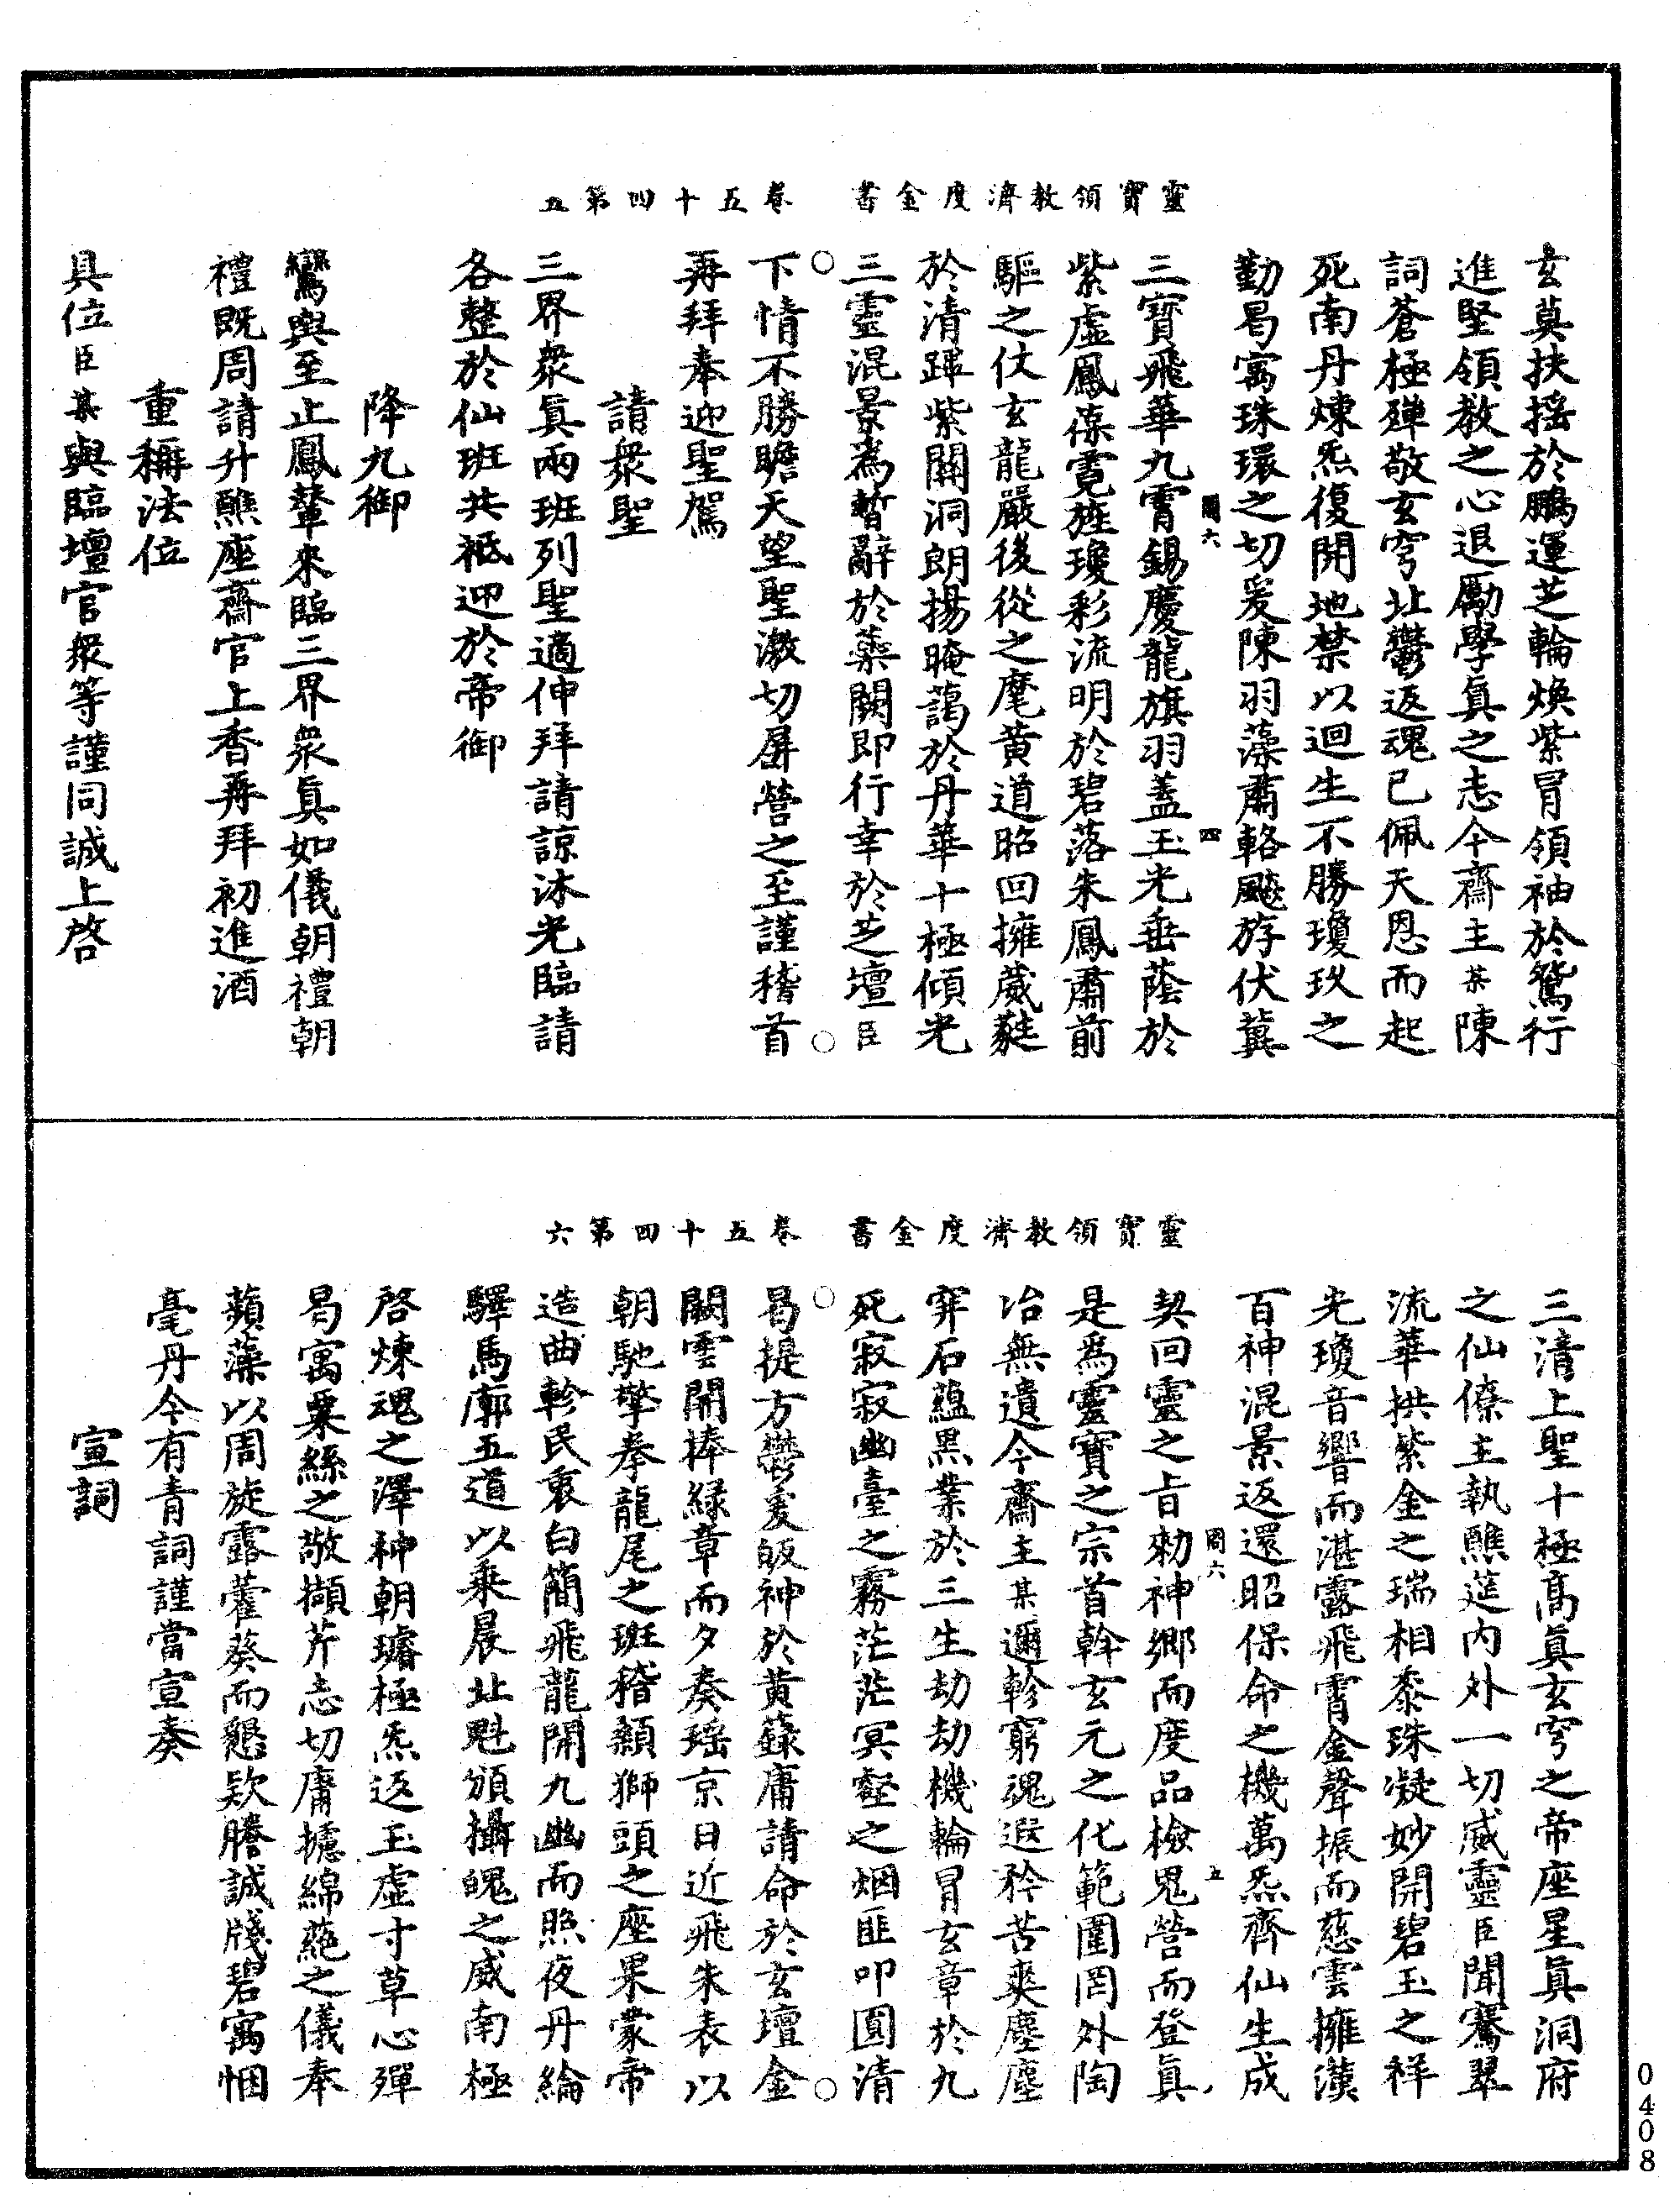 靈寶領教濟度金書 卷五十四第五
玄莫扶搖於鵬運芝輪煥紫冒領袖於鴛行
進堅領教之心退勵學真之志今齋主某陳
詞蒼極殫敬玄穹北鬱返魂已佩天恩而起
死南丹煉炁復開地禁以迴生不勝瓊玖之
勤曷寓珠環之切爰陳羽藻肅輅飈斿伏冀
三寶飛華九霄錫慶龍旗羽蓋玉光垂蔭於
紫虛鳳葆霓旌瓊彩流明於碧落朱鳳肅前
驅之仗玄龍嚴後從之麾黃道昭回擁葳蕤
於清蹕紫關洞朗揚晻藹於丹華十極傾光
三靈混景為暫辭於蘂闕即行幸於芝壇臣
下情不勝瞻天望聖激切屏營之至謹稽首
再拜奉迎聖駕
請衆聖
三界衆真兩班列聖適伸拜請諒沐光臨請
各整於仙班共祗迎於帝御
降九御
鸞輿至止鳳輦來臨三界衆真如儀朝禮朝
禮既周請升醮座齋官上香再拜初進酒
重稱法位
具位臣某與臨壇官衆等謹同誠上啓
國六 四
靈寶領教濟度金書 卷五十四第六
三清上聖十極高真玄穹之帝座星真洞府
之仙僚主執醮筵內外一切威靈臣聞騫翠
流華拱紫金之瑞相黍珠凝妙開碧玉之祥
光瓊音響而湛露飛霄金聲振而慈雲擁漢
百神混景返還昭保命之機萬炁齊仙生成
契回靈之旨勑神鄉而度品檢鬼營而登真
是為靈寶之宗首幹玄元之化範圍罔外陶
冶無遺今齋主某邇軫窮魂遐矜苦爽塵塵
穽石蘊黑業於三生劫劫機輪冒玄章於九
死寂寂幽臺之霧茫茫冥壑之烟匪叩圓清
曷提方鬱爰皈神於黃籙庸請命於玄壇金
闕雲開捧緑章而夕奏瑶京日近飛朱表以
朝馳擎拳龍尾之班稽顙獅頭之座果蒙帝
造曲軫民衷白簡飛龍開九幽而照夜丹綸
驛馬廓五道以乘晨北魁頒攝魄之威南極
啓煉魂之澤神朝璿極炁返玉虛寸草心殫
曷寓粟絲之敬擷芹志切庸攄綿蕝之儀奉
蘋藻以周旋露藿葵而懇欵謄誠牋碧寓悃
毫丹今有青詞謹當宣奏
宣詞
國六 五
0408